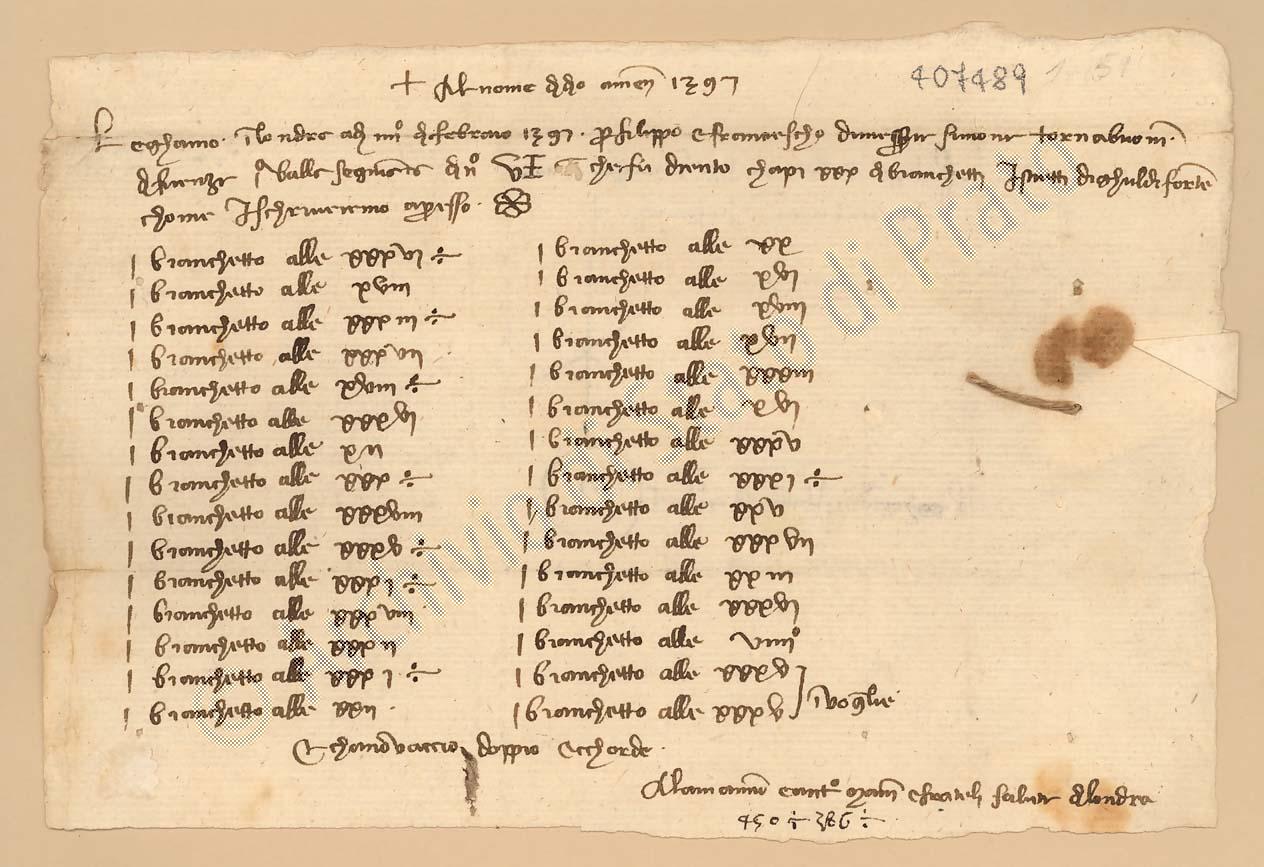 407489
+ Al nome di dio amen 1397
Leghamo i londra adi iiii° di febraio 1397 per filippo e franciescho di messer simone tornabuoni
di firenze balle segniate di n° VI che fu drento chapi xxx di bianchetti istretti di ghuldiforte
chome ischriveremo apresso
1 bianchetto alle xxxvi ÷
1 bianchetto alle xviii
1 bianchetto alle xxxiii ÷
1 bianchetto alle xxxvii
1 bianchetto alle xviiii ÷
1 bianchetto alle xxxvi
1 bianchetto alle xii
1 bianchetto alle xxx ÷
1 bianchetto alle xxxviii
1 bianchetto alle xxxv ÷
1 bianchetto alle xxxi ÷
1 bianchetto alle xxxviii
1 bianchetto alle xxxii
1 bianchetto alle xxxi ÷
1 bianchetto alle xxii
1 bianchetto alle xx
1 bianchetto alle xvi
1 bianchetto alle xviii
1 bianchetto alle xvii
1 bianchetto alle xxxiii
1 bianchetto alle xvi
1 bianchetto alle xxxv
1 bianchetto alle xxxi ÷
1 bianchetto alle xxv
1 bianchetto alle xxxvii
1 bianchetto alle xxiii
1 bianchetto alle xxxvi
1 bianchetto alle viiii°
1 bianchetto alle xxxv
1 bianchetto alle xxxv invoglie
E chanovaccio doppio e chorde
Alamanno e ant° e fratelli salute di londra
450 ÷ 386 ÷
© Archivio di Stato di Prato